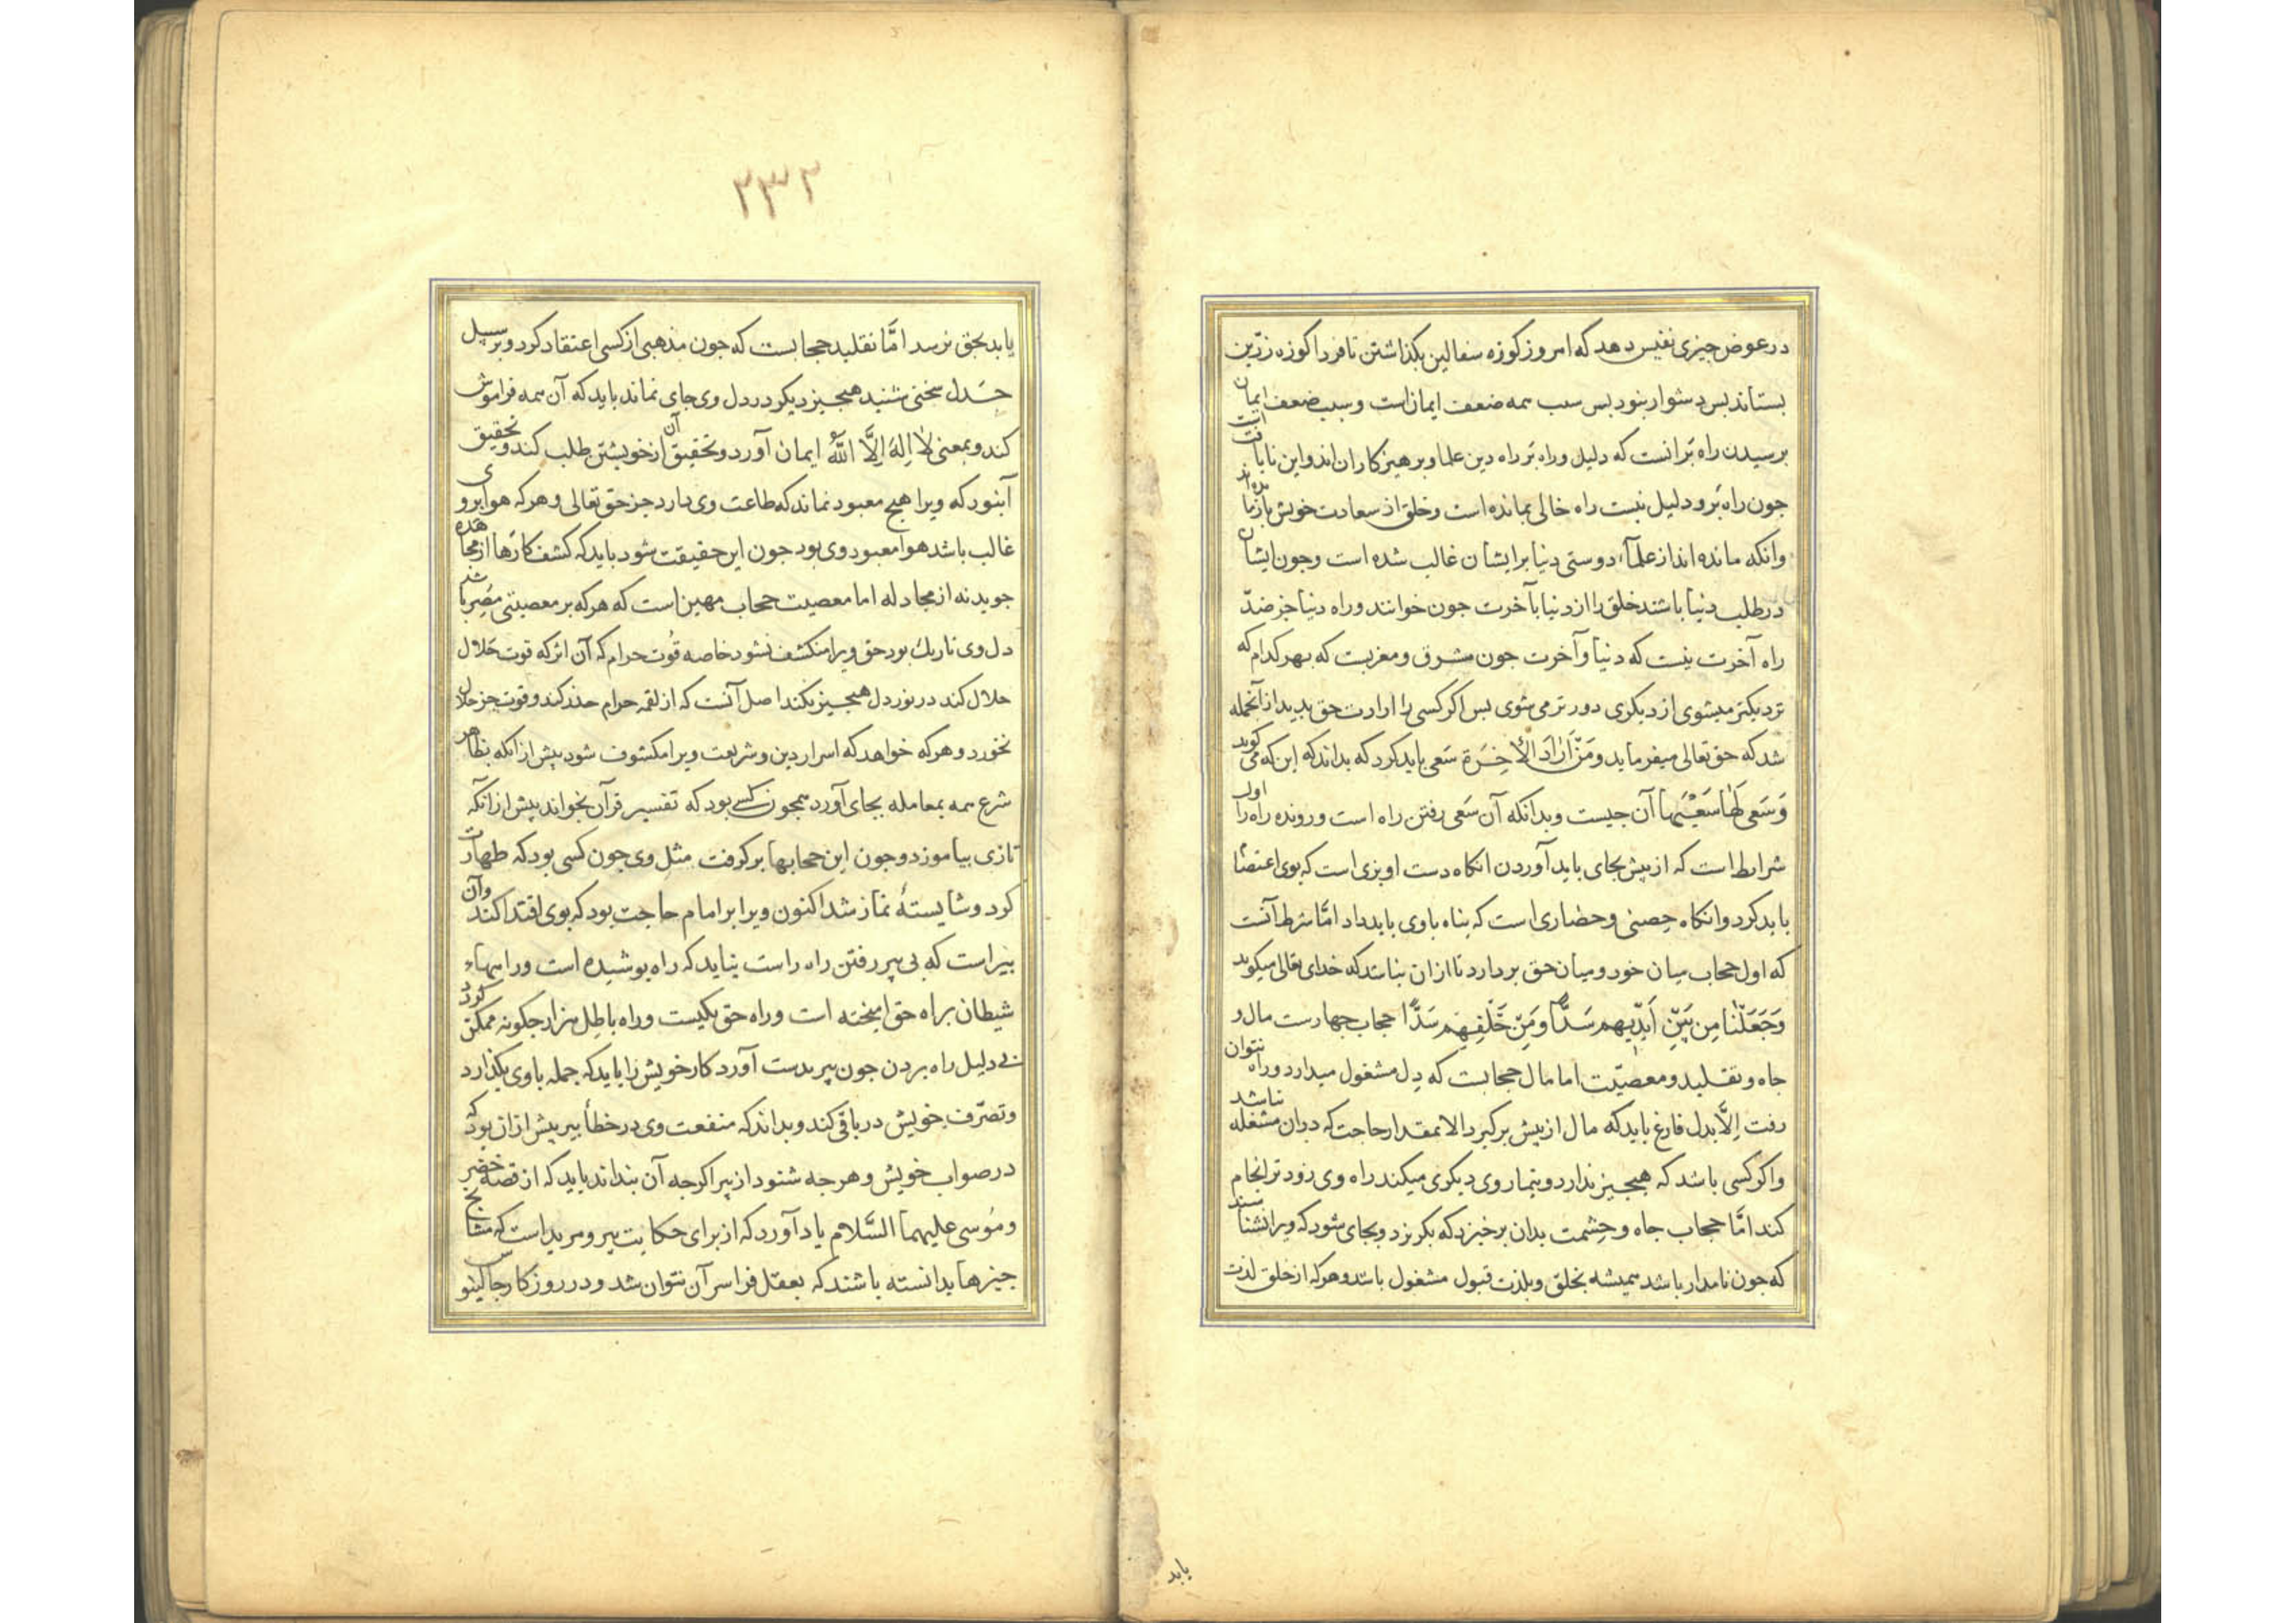 درعوض چیزی نفیس دهد که امروز کوزه سفالین بکذاشتن تا فردا کوزه زرّین
بستاند بس دشوار بنود بس سبب همه ضعف ایمان است و سبب ضعف ایمان
برسیدن راه بَرانست که دلیل و راه بَر راه دین علما و برهیزکاران اند و این نایافت است
جون راه بَر و دلیل نیست راه خالی بمانده است و خلق از سعادت خویش بازمانده اند
وانکه مانده اند از علمآء دوستی دنیا بر ایشان غالب شده است و جون ایشان
در طلب دنیا باشند خلق را از دنیا بآخرت جون خوانند و راه دنیا جز ضدّ
راه آخرت نیست که دنیا و آخرت جون مشرق و مغربست که بهر کدام که
نزدیکتر میشوی از دیکری دورتر می شوی بس اکر کسی را ارادت حق بدید از آنجمله
شد که حق تعالی میفرماید وَمَنْ اَرَادَ الاْخِرَةَ سَعی باید کرد که بداند که این که می کوید
وَسَعی لَهَا سَعْیَهَا آن جیست و بدانکه آن سَعی رفتن راه است و رونده راه را اول
شرایط است که از بیش بجای باید آوردن انکاه دست اویزی است که بوی اعتصام
باید کرد و انکاه حِصنی و حصاری است که بناه باوی باید داد امَّا شرط آنست
که اول حجاب میان خود و میان حق بردارد تا ازان نباشد که خدای تعالی میکوید
وَجَعَلْنَا مِن بَیْنِ اَیْدِیهِم سَدًّا وَمِنْ خَلْفِهِم سَدًّا حجاب جهارست مال و
جاه و تقلید و معصیّت اما مال حجابست که دِل مشغول میدارد و راه نتوان
رفت اِلَّا بدل فارغ باید که مال از بیش برکیرد الا بمقدار حاجت که دران مشغله نباشد
و اکر کسی باشد که هیجیز ندارد و تیمار وی دیکری میکند راه وی زودتر انجام
کند امَّا حجاب جاه و حِشمت بدان برخیزد که بکریزد و بجای شود که ویرا نشناسند
که جون نامدار باشد همیشه بخلق و بلذت قبول مشغول باشد و هرکه از خلق لذت
یابد
۲۳۲
یابد بحق نرسد امَّا تقلید حجابست که جون مذهبی از کسی اعتقاد کرد و بر سبیل
جَدل سخنی شنید هیجیز دیکر در دل وی جای نماند باید که آن همه فراموش
کند و بمعنی لَا اِلهَ اِلَّا اللّٰهُ ایمان آورد و تحقیق آن از خویشتن طلب کند و تحقیق
آبنود که ویرا هیچ معبود نماند که طاعت وی دارد جز حق تعالی و هرکه هوا بروی
غالب باشد هوا معبود وی بود جون این حقیقت شود باید که کشف کارها از مجاهده
جوید نه از مجادله اما معصیت حجاب مهین است که هرکه بر معصیتی مُصِر باشد
دل وی تاریک بود حق ویرا منکشف نشود خاصه قُوت حرام که آن اثر که قوت حَلال
حلال کند در نور دل هیجیز نکند اصل آنست که از لقمه حرام حذر کند و قوت جز حلال
نخورد و هرکه خواهد که اسرار دین و شریعت ویرا مکشوف شود بیش از انکه بظاهر
شرع همه بمعامله بجای آورد همجون کسی بود که تفسیر قرآن بخواند بیش از انکه
تازی بیاموزد و جون این حجابها برکرفت مثل وی جون کسی بود که طهارت
کرد و شایستۀ نماز شد اکنون ویرا برامام حاجت بود که بوی اقتدا کند و آن
بیراست که بی بیر رفتن راه راست نیاید که راه بوشیده است و راهها
شیطان براه حق امیخته است و راه حق یکیست و راه باطِل هزار جکونه ممکن کردد
بی دلیل راه بردن جون بیر بدست آورد کار خویش را باید که جمله باوی بکذارد
و تصرّف خویش در باقی کند و بداند که منفعت وی در خطأ بیر بیش ازان بود که
در صواب خویش و هرجه شنود از بیر اکرجه آن بنداند باید که از قصه خضر
و مُوسی علیهما السَّلام یاد آورد که از برای حکایت بیر و مریداست که مشایخ
جیزها بدانسته باشند که بعقل فرا سر آن نتوان شد و در روزکار جالینوس